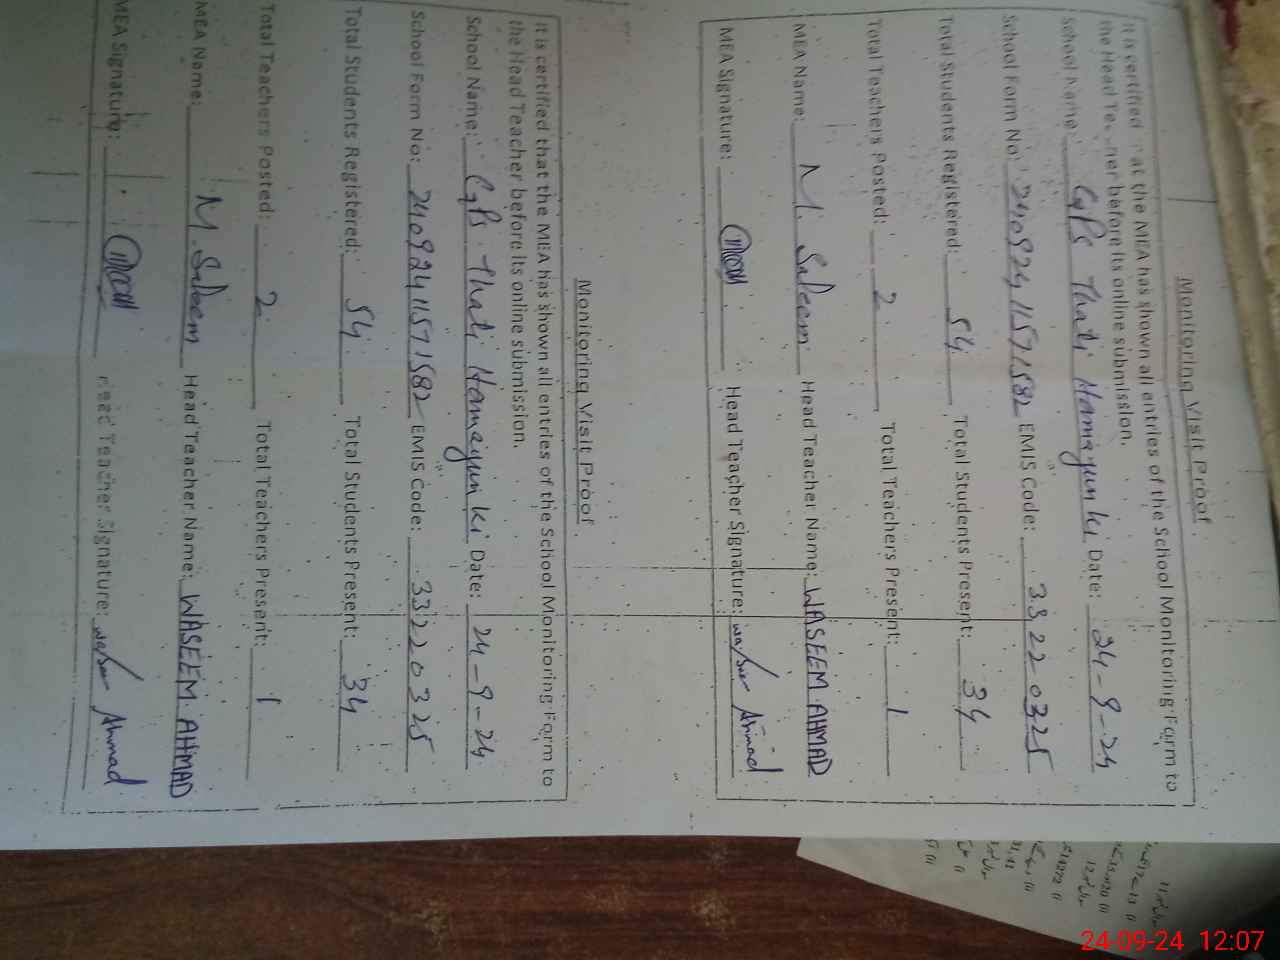 Monitoring Visit Proof
It is certified at the MEA has shown all entries of the School Monitoring Form to
the Head Teacher before its online submission.
School Name: GPS Thati Hamayun ki Date: 24-9-24
School Form No: 24092411571582 EMIS Code: 33220325
Total Students Registered: 54 Total Students Present: 34
Total Teachers Posted: 2 Total Teachers Present: 1
MEA Name: M. Saleem Head Teacher Name: WASEEM AHMAD
MEA Signature: Head Teacher Signature: Ahmad
Monitoring Visit Proof
It is certified that the MEA has shown all entries of the School Monitoring Form to
the Head Teacher before its online submission.
School Name: GPS Thati Hamayun ki Date: 24-9-24
School Form No: 24092411571582 EMIS Code: 33220325
Total Students Registered: 54 Total Students Present: 34
Total Teachers Posted: 2 Total Teachers Present: 1
MEA Name: M. Saleem Head Teacher Name: WASEEM AHMAD
MEA Signature: Head Teacher Signature: Ahmad
24-09-24 12:07